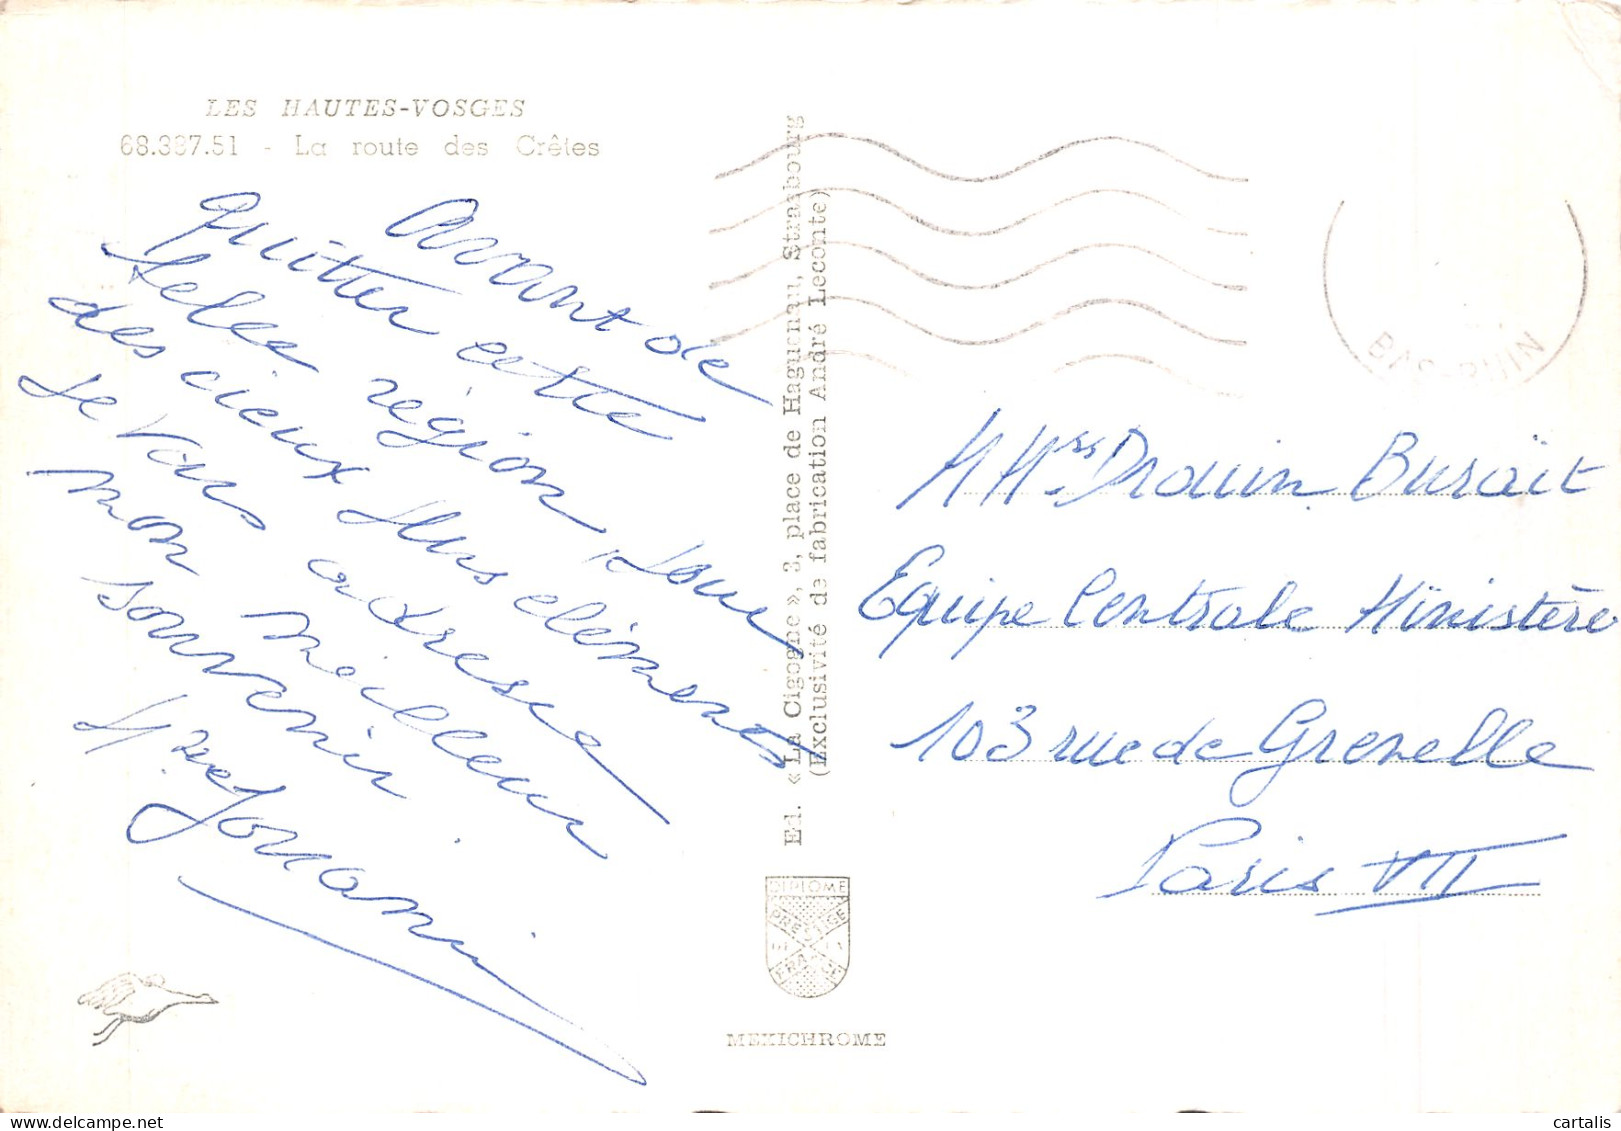 LES HAUTES-VOSGES
68.337.51 - La route des Crêtes
Avant de
quitter cette
belle région pour
des cieux plus cléments
je vous adresse
mon meilleur
souvenir
Ed. « La Cigogne », 3, place de Haguenau, Strasbourg
(Exclusivité de fabrication André Leconte)
DIPLOME
PRESTIGE
DE LA
FRANCE
MEXICHROME
BAS-RHIN
Drouin
Equipe Centrale Ministère
103 rue de Grenelle
Paris VII
cartalis